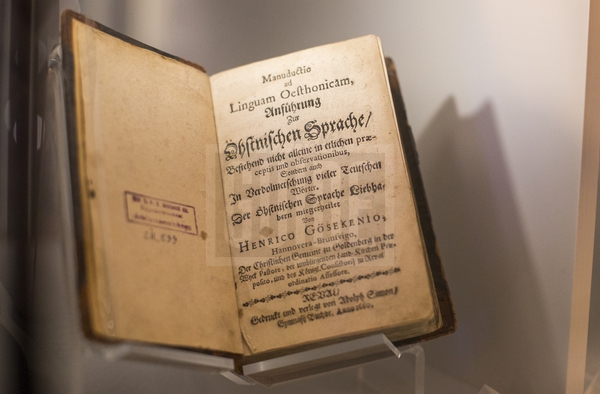 Manuductio
ad
Linguam Oesthonicam,
Anführung
Zur
Öhstnischen Sprache/
Bestehend nicht alleine in etlichen præ-
ceptis und observationibus,
Sondern auch
In Verdolmetschung vieler Teutschen
Wörter.
Der Öhstnischen Sprache Liebha-
bern mitgetheilet
Von
HENRICO GÖSEKENIO,
Hannovera-Brunsvigo,
Der Christlichen Gemeine zu Goldenberg in der
Wyck Pastore, der umbliegenden Land-Kirchen Præ-
posito, und des Königl. Consistorij in Reval
ordinario Assessore.
REVAL/
Gedruckt und verlegt von Adolph Simon/
Gymnasij Buchdr. Anno 1660.